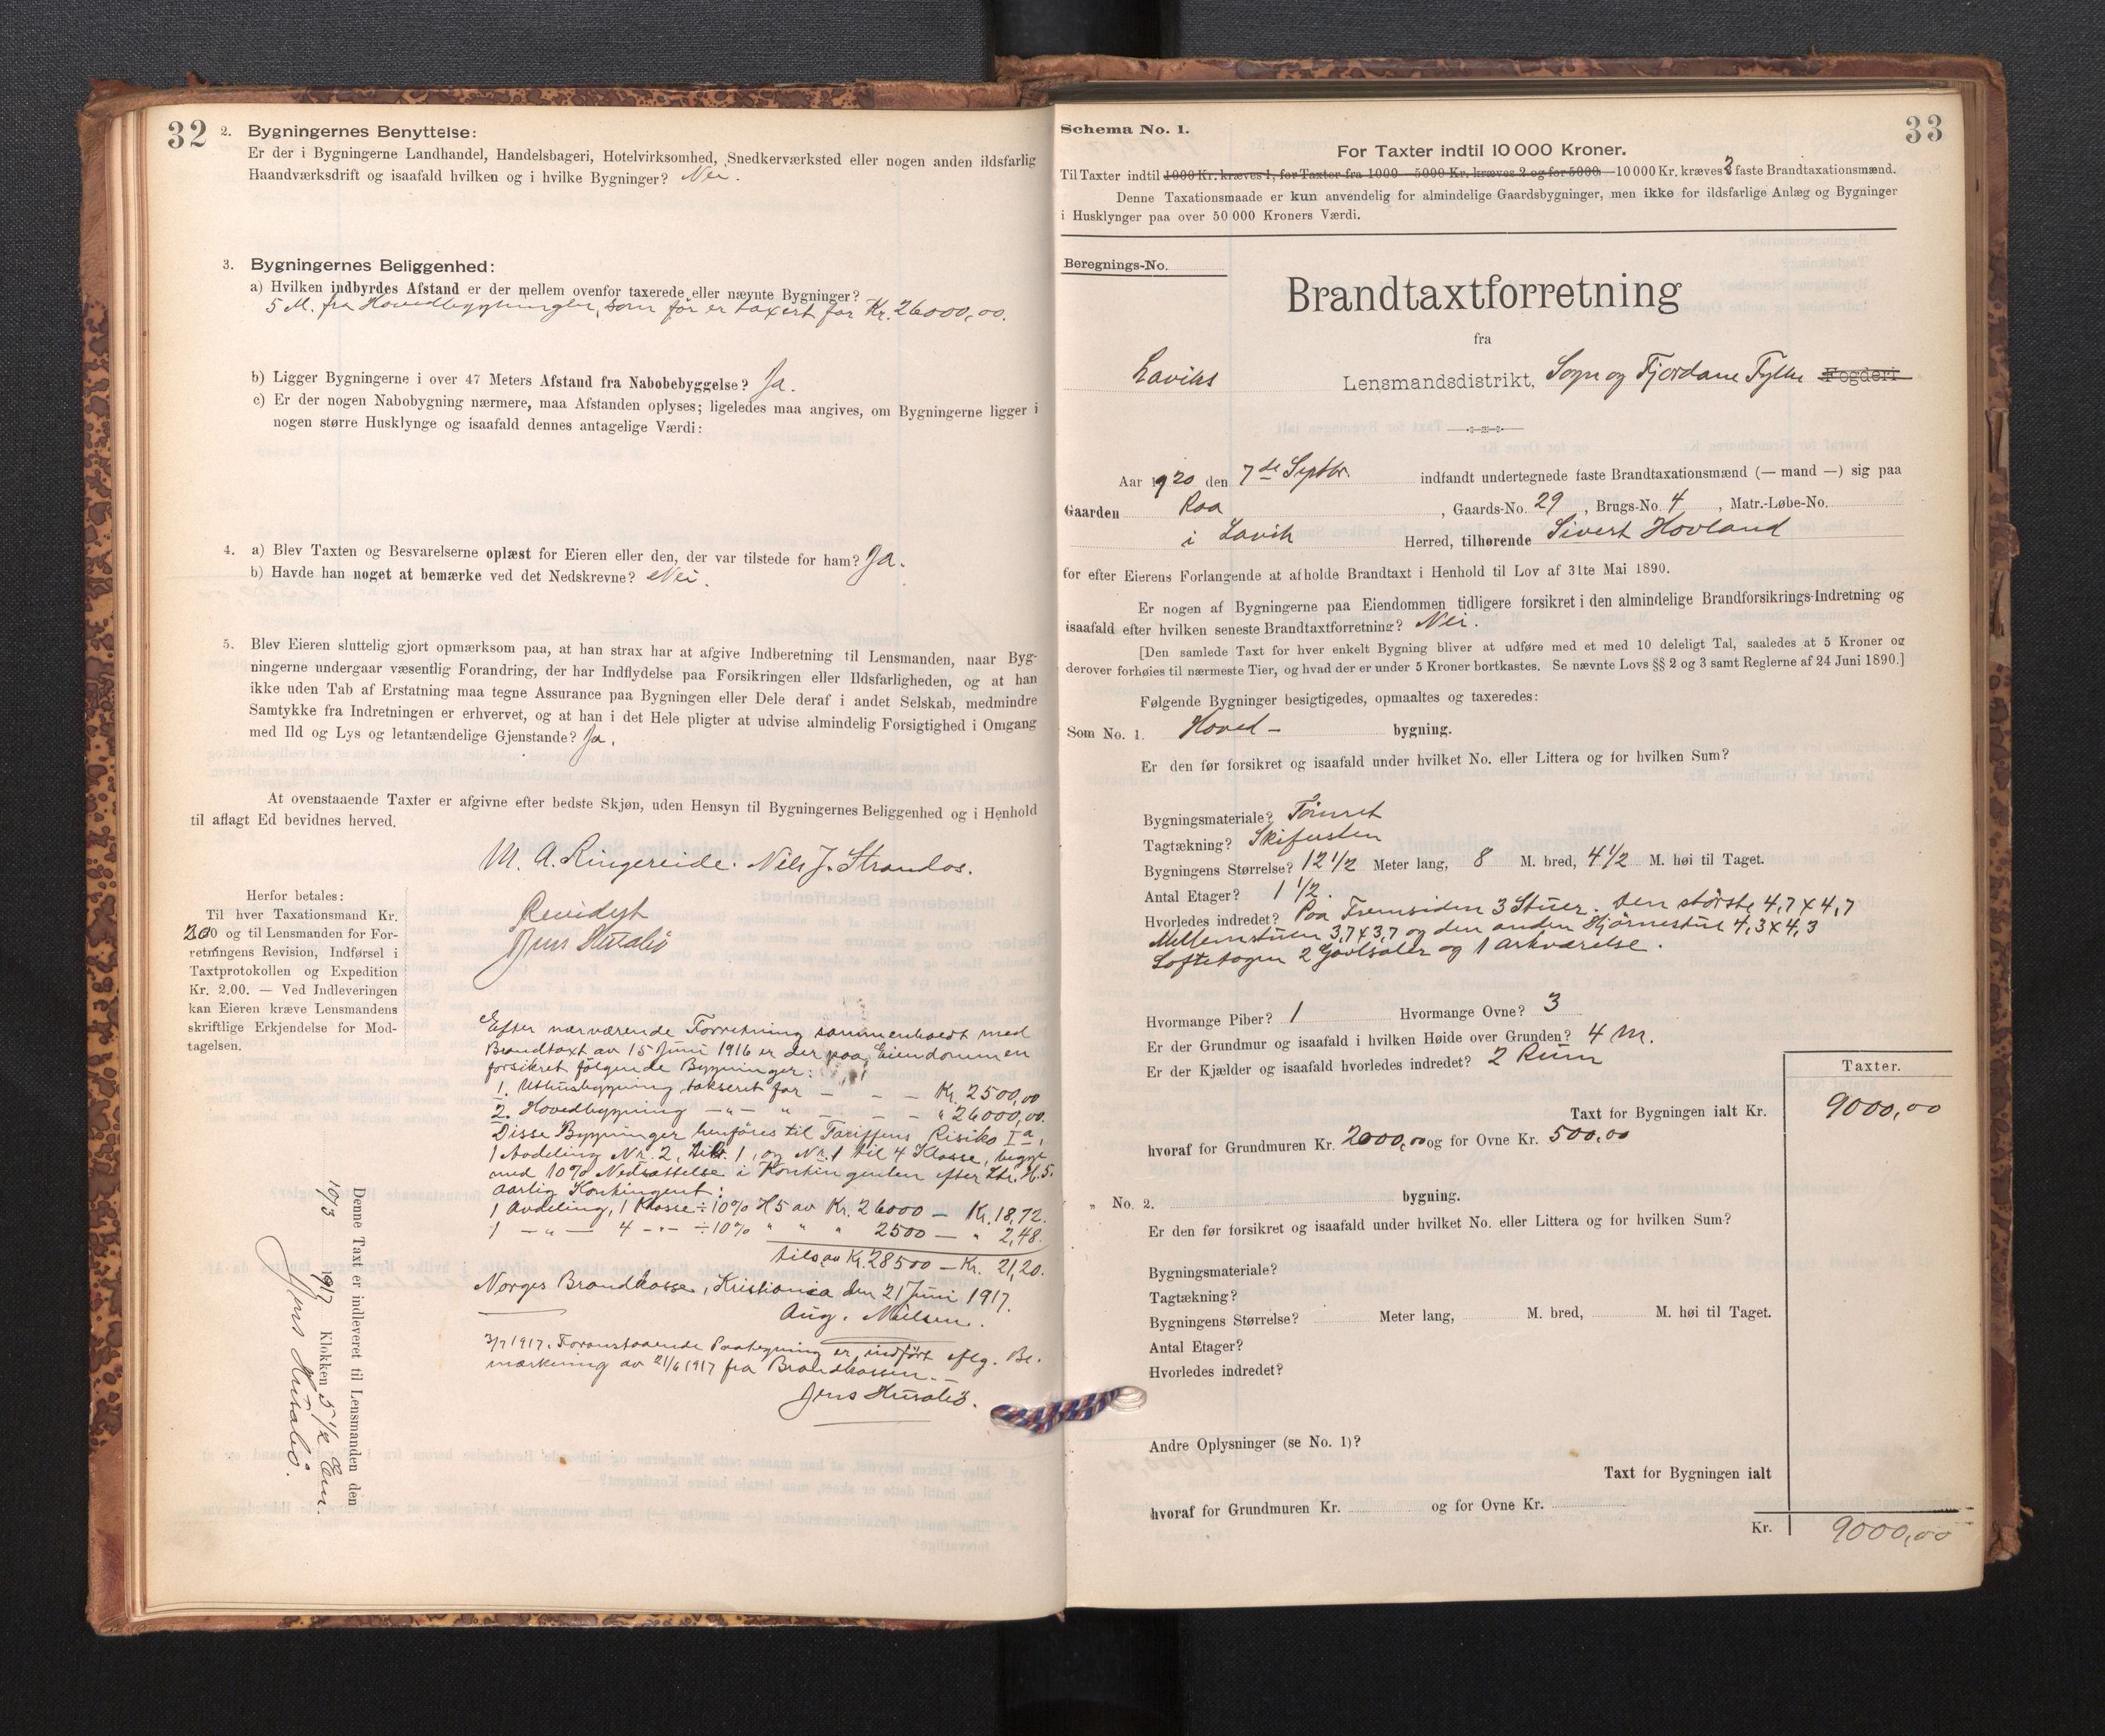 32
2. Bygningernes Benyttelse:
Er der i Bygningerne Landhandel, Handelsbageri, Hotelvirksomhed, Snedkerværksted eller nogen anden ildsfarlig
Haandværksdrift og isaafald hvilken og i hvilke Bygninger? Nei.
3. Bygningernes Beliggenhed:
a) Hvilken indbyrdes Afstand er der mellem ovenfor taxerede eller nævnte Bygninger?
5 M. fra Hovedbygningen, som før er taxert for Kr. 26000,00.
b) Ligger Bygningerne i over 47 Meters Afstand fra Nabobebyggelse? Ja.
c) Er der nogen Nabobygning nærmere, maa Afstanden oplyses; ligeledes maa angives, om Bygningerne ligger i
nogen større Husklynge og isaafald dennes antagelige Værdi:
4. a) Blev Taxten og Besvarelserne oplæst for Eieren eller den, der var tilstede for ham? Ja.
b) Havde han noget at bemærke ved det Nedskrevne? Nei.
5. Blev Eieren sluttelig gjort opmærksom paa, at han strax har at afgive Indberetning til Lensmanden, naar Byg-
ningerne undergaar væsentlig Forandring, der har Indflydelse paa Forsikringen eller Ildsfarligheden, og at han
ikke uden Tab af Erstatning maa tegne Assurance paa Bygningen eller Dele deraf i andet Selskab, medmindre
Samtykke fra Indretningen er erhvervet, og at han i det Hele pligter at udvise almindelig Forsigtighed i Omgang
med Ild og Lys og letantændelige Gjenstande? Ja.
At ovenstaaende Taxter er afgivne efter bedste Skjøn, uden Hensyn til Bygningernes Beliggenhed og i Henhold
til aflagt Ed bevidnes herved.
M. A. Ringereide. Nils J. Strandos.
Herfor betales:
Til hver Taxationsmand Kr.
200 og til Lensmanden for For-
retningens Revision, Indførsel i
Taxtprotokollen og Expedition
Kr. 2.00. — Ved Indleveringen
kan Eieren kræve Lensmandens
skriftlige Erkjendelse for Mod-
tagelsen.
Revidert
Jens Husabø
Efter nærværende Forretning sammenholdt med
Brandtaxt av 15 Juni 1916 er der paa Eiendommen
forsikret følgende Bygninger:
1. Uthusbygning takseret for — — — Kr. 2500,00
2. Hovedbygning —"— " — — — " 26000,00.
Disse Bygninger henføres til Tariffens Risiko Ia,
1 Avdeling Nr. 2, Litr. 1, og Nr. 1 til 4 Klasse, begge
med 10% Nedsættelse i Kontingenten efter Litr. H.5.
Aarlig Kontingent:
1 Avdeling, 1 Klasse ÷ 10% H5 av Kr. 26000 — Kr. 18,72.
1 —"— 4 —"— ÷ 10% " " " 2500 — " 2,48.
tils. av Kr. 28500 — Kr. 21,20.
Norges Brandkasse, Kristiania den 21 Juni 1917.
Aug. Nielsen.
3/7 1917. Foranstaaende Paategning er indført eflg. Be-
mærkning av 21/6 1917 fra Brandkassen.—
Jens Husabø.
Denne Taxt er indleveret til Lensmanden den
10/3 1917 Klokken 5 1/2 Em.
Jens Husabø.
33
Schema No. 1.
For Taxter indtil 10 000 Kroner.
Til Taxter indtil 1000 Kr. kræves 1, for Taxter fra 1000—5000 Kr. kræves 2 og for 5000—10000 Kr. kræves 2 faste Brandtaxationsmænd.
Denne Taxationsmaade er kun anvendelig for almindelige Gaardsbygninger, men ikke for ildsfarlige Anlæg og Bygninger
i Husklynger paa over 50 000 Kroners Værdi.
Beregnings-No.
Brandtaxtforretning
fra
Laviks Lensmandsdistrikt, Sogn og Fjordane Fylke Fogderi
Aar 1920 den 7de Septbr. indfandt undertegnede faste Brandtaxationsmænd (— mand —) sig paa
Gaarden Raa, Gaards-No. 29, Brugs-No. 4, Matr.-Løbe-No.
i Lavik Herred, tilhørende Sivert Hovland
for efter Eierens Forlangende at afholde Brandtaxt i Henhold til Lov af 31te Mai 1890.
Er nogen af Bygningerne paa Eiendommen tidligere forsikret i den almindelige Brandforsikrings-Indretning og
isaafald efter hvilken seneste Brandtaxtforretning? Nei.
[Den samlede Taxt for hver enkelt Bygning bliver at udføre med et med 10 deleligt Tal, saaledes at 5 Kroner og
derover forhøies til nærmeste Tier, og hvad der er under 5 Kroner bortkastes. Se nævnte Lovs §§ 2 og 3 samt Reglerne af 24 Juni 1890.]
Følgende Bygninger besigtigedes, opmaaltes og taxeredes:
Som No. 1. Hoved- bygning.
Er den før forsikret og isaafald under hvilket No. eller Littera og for hvilken Sum?
Bygningsmateriale? Tømret
Tagtækning? Skifersten
Bygningens Størrelse? 12 1/2 Meter lang, 8 M. bred, 4 1/2 M. høi til Taget.
Antal Etager? 1 1/2.
Hvorledes indredet? Paa Fremsiden 3 Stuer. Den største 4,7 x 4,7
Mellemstuen 3,7 x 3,7 og den anden Hjørnestue 4,3 x 4,3
Loftetagen 2 Gavlsaler og 1 arkværelse.
Hvormange Piber? 1 Hvormange Ovne? 3
Er der Grundmur og isaafald i hvilken Høide over Grunden? 4 M.
Er der Kjælder og isaafald hvorledes indredet? 2 Rum
Taxter.
Taxt for Bygningen ialt Kr. 9000,00
hvoraf for Grundmuren Kr. 2000,00 og for Ovne Kr. 500,00
" No. 2. bygning.
Er den før forsikret og isaafald under hvilket No. eller Littera og for hvilken Sum?
Bygningsmateriale?
Tagtækning?
Bygningens Størrelse? Meter lang, M. bred, M. høi til Taget.
Antal Etager?
Hvorledes indredet?
Andre Oplysninger (se No. 1)?
Taxt for Bygningen ialt
hvoraf for Grundmuren Kr. og for Ovne Kr.
Kr. 9000,00